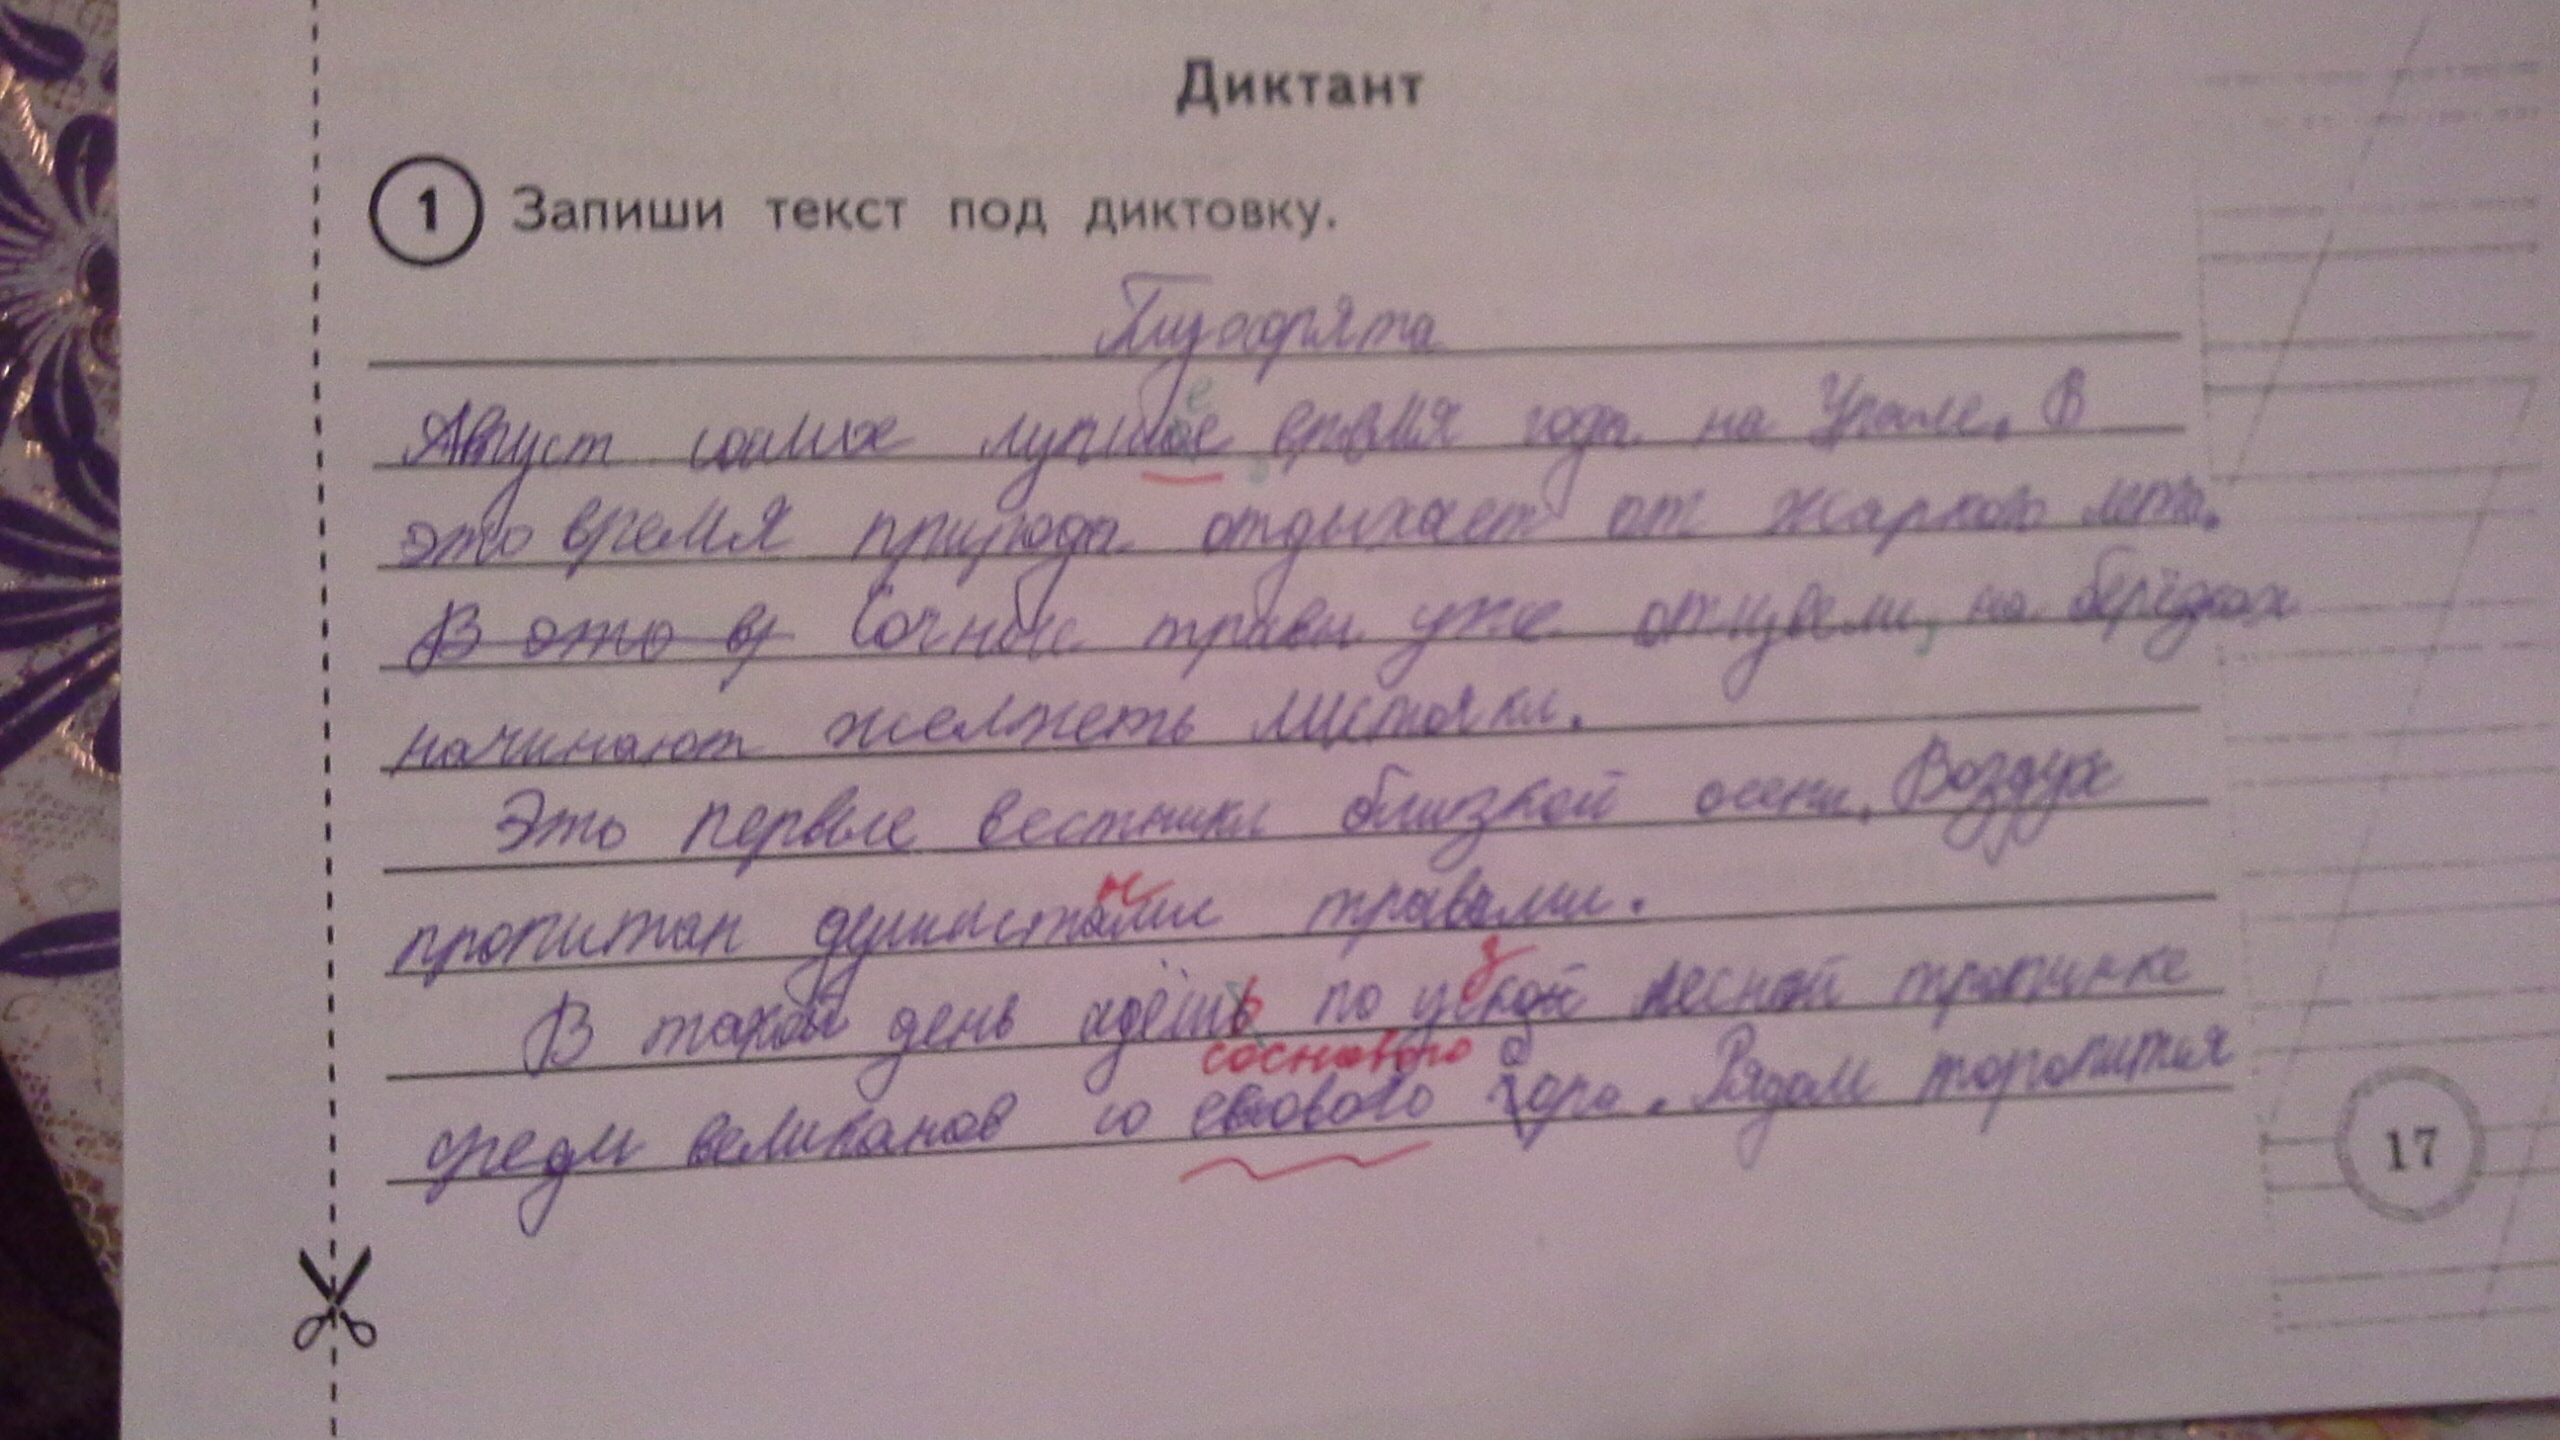 Диктант
1 Запиши текст под диктовку.
Август самое лучшое время года на Урале. В
е
это время природа отдыхает от жаркого лета.
В это в Сочные травы уже отцвели, на берёзах
начинают желтеть листочки.
Это первые вестники близкой осени. Воздух
пропитан душистами травами.
ы
В такой день идёшь по уской лесной тропинке
з
соснового б
среди великанов со евового гора. Рядом торопится
17